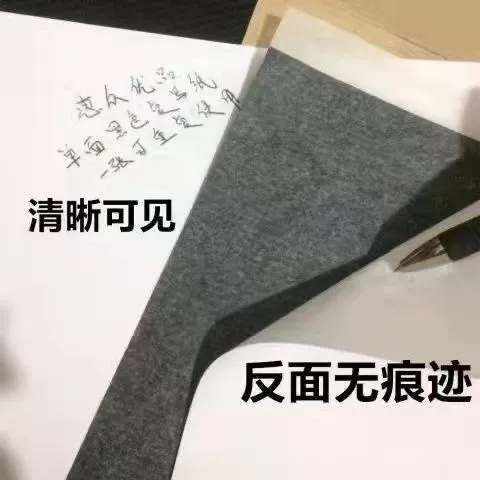 恋众优品复写纸
单面黑色复写纸
一张可重复使用
清晰可见
反面无痕迹